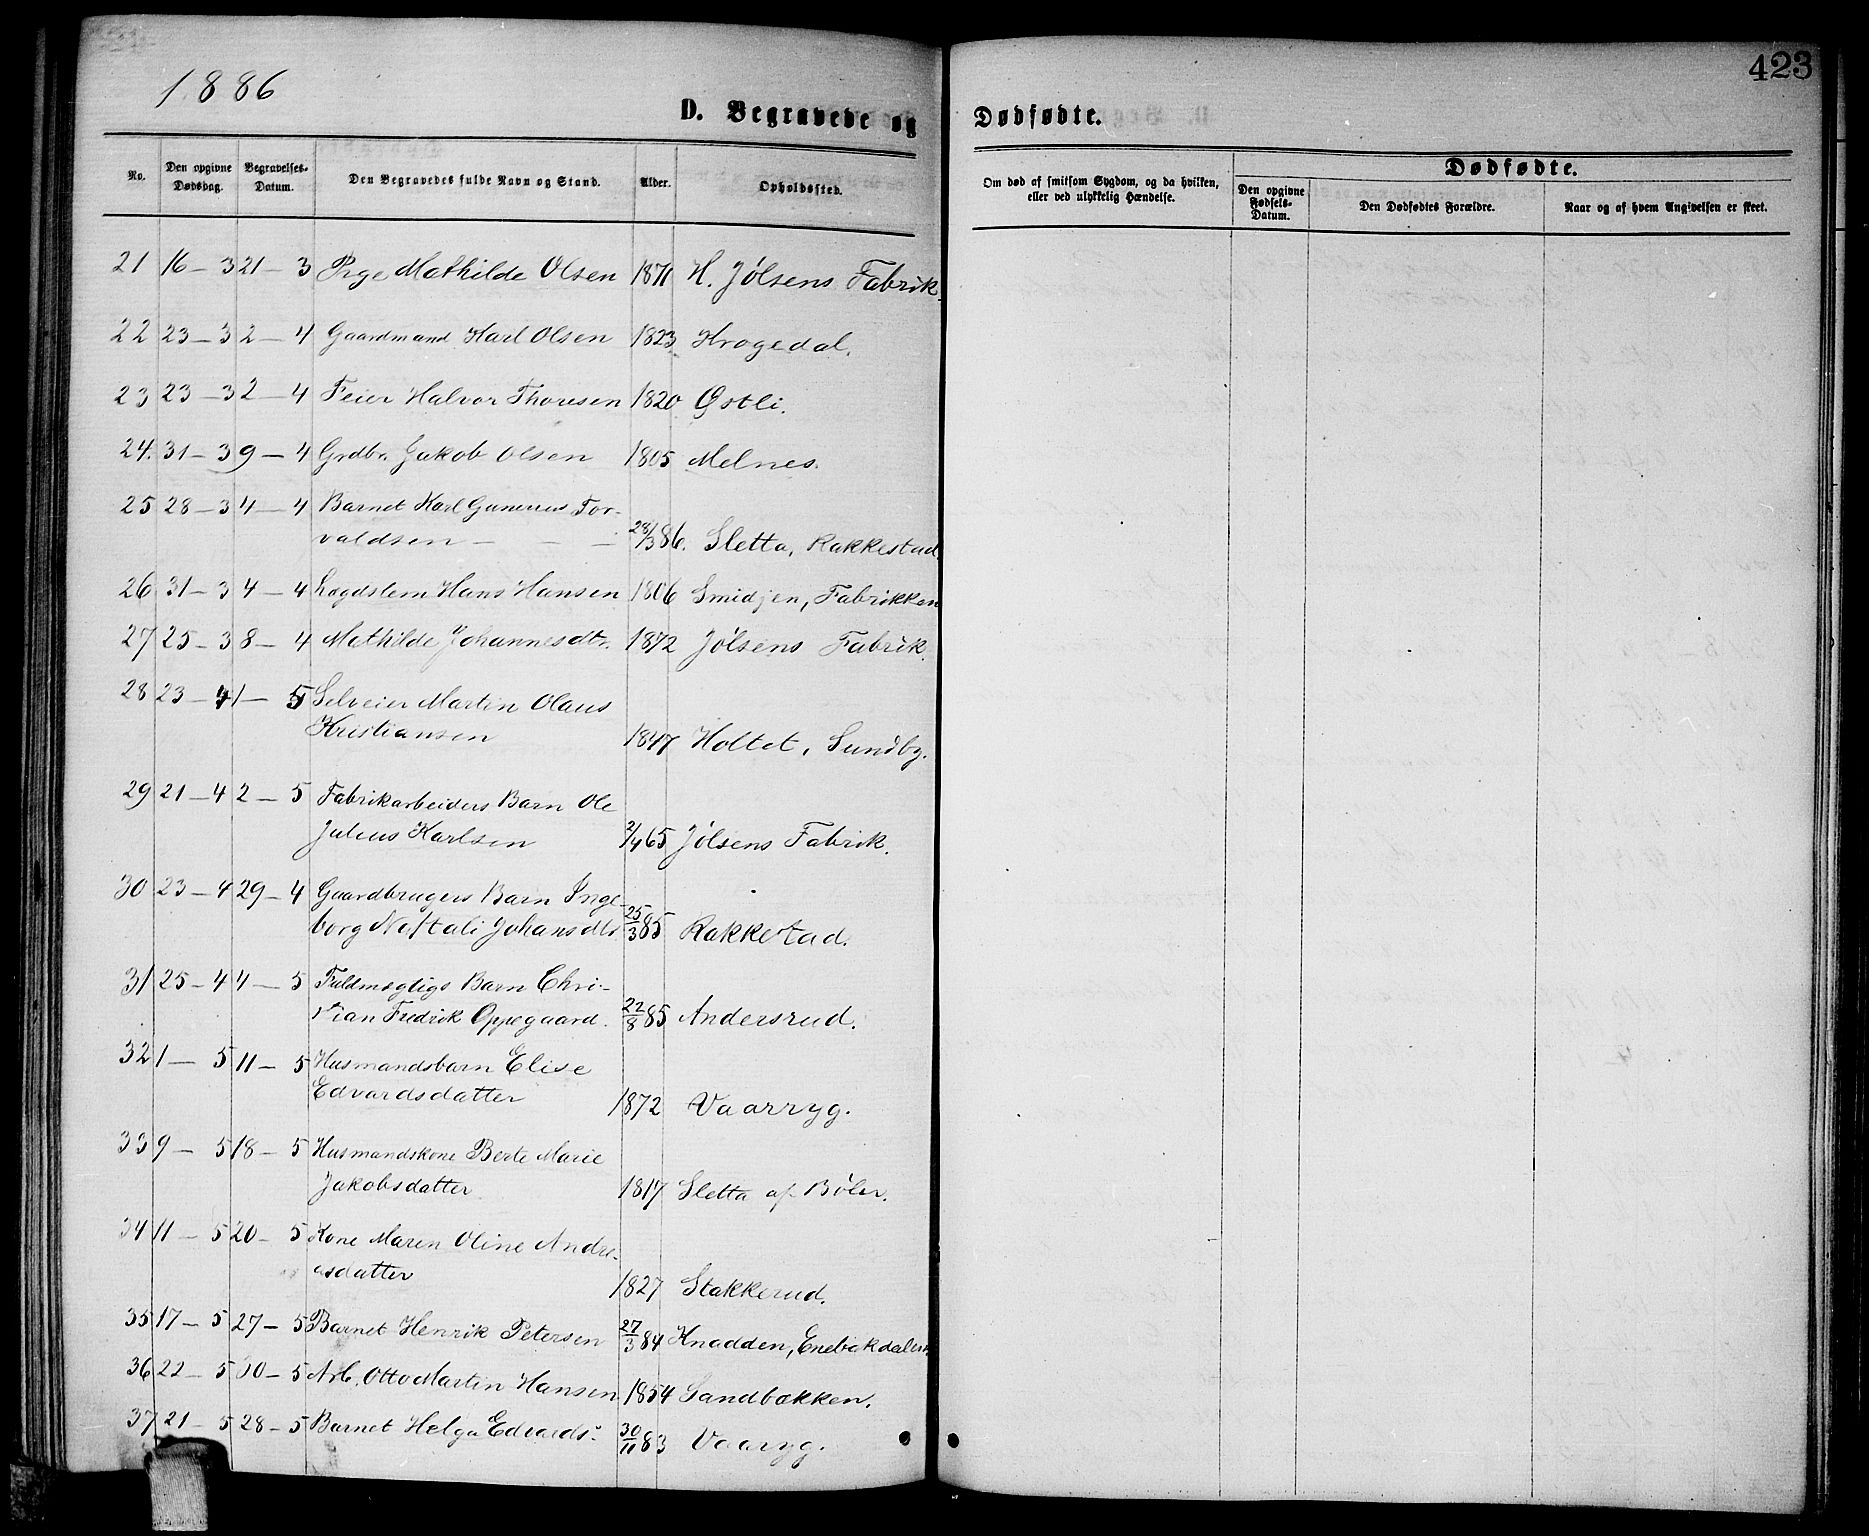 1886
423
D. Begravede og Dødfødte.
No. Den opgivne Dødsdag. Begravelses-Datum. Den Begravedes fulde Navn og Stand. Alder. Opholdssted.
Om død af smitsom Sygdom, og da hvilken, eller ved ulykkelig Hændelse.
Dødfødte.
Den opgivne Fødsels-Datum. Den Dødfødtes Forældre. Naar og af hvem Angivelsen er skeet.
21 16-3 21-3 Pige Mathilde Olsen 1871 H. Jølsens Fabrik.
22 23-3 2-4 Gaardmand Karl Olsen 1823 Krogedal.
23 23-3 2-4 Feier Halvor Thoresen 1820 Østli.
24. 31-3 9-4 Grdbr. Jakob Olsen 1805 Melnes.
25 28-3 4-4 Barnet Karl Gunerius Tor-
valdsen - - - 28/3 86. Sletta, Rakkestad
26 31-3 4-4 Lægdslem Hans Hansen 1806 Smidjen, Fabrikken
27 25-3 8-4 Mathilde Johannesdtr. 1872 Jølsens Fabrik.
28 23-4 1-5 Selveier Martin Olaus
Kristiansen 1847 Holtet, Sundby.
29 21-4 2-5 Fabrikarbeiders Barn Ole
Julius Karlsen 2/4 65 Jølsens Fabrik.
30 23-4 29-4 Gaardbrugers Barn Inge-
borg Neftali Johansdtr. 25/3 85 Rakkestad.
31 25-4 4-5 Fuldmægtigs Barn Chri-
stian Fredrik Oppegaard. 22/8 85 Andersrud.
32 1-5 11-5 Husmandsbarn Elise
Edvardsdatter 1872 Vaarryg.
33 9-5 18-5 Husmandskone Berte Marie
Jakobsdatter 1817 Sletta af Bøler.
34 11-5 20-5 Kone Maren Oline Andre-
asdatter 1827 Stakkerud.
35 17-5 27-5 Barnet Henrik Petersen 27/3 84 Knadden, Enebakdalen.
36 22-5 30-5 Arb. Otto Martin Hansen 1854 Sandbakken.
37 21-5 28-5 Barnet Helga Edvards. 30/11 83 Vaaryg.